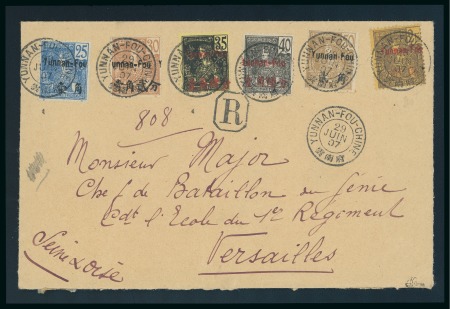 25 35 40
Yunnan-Fou Yunnan-Fou Yunnan-Fou
YUNNAN-FOU-CHINE
808
R
YUNNAN-FOU-CHINE
29
JUIN
07
Monsieur Major
Chef de Bataillon du Génie
Cdt l'Ecole du 1er Regiment
Versailles
Seine & Oise